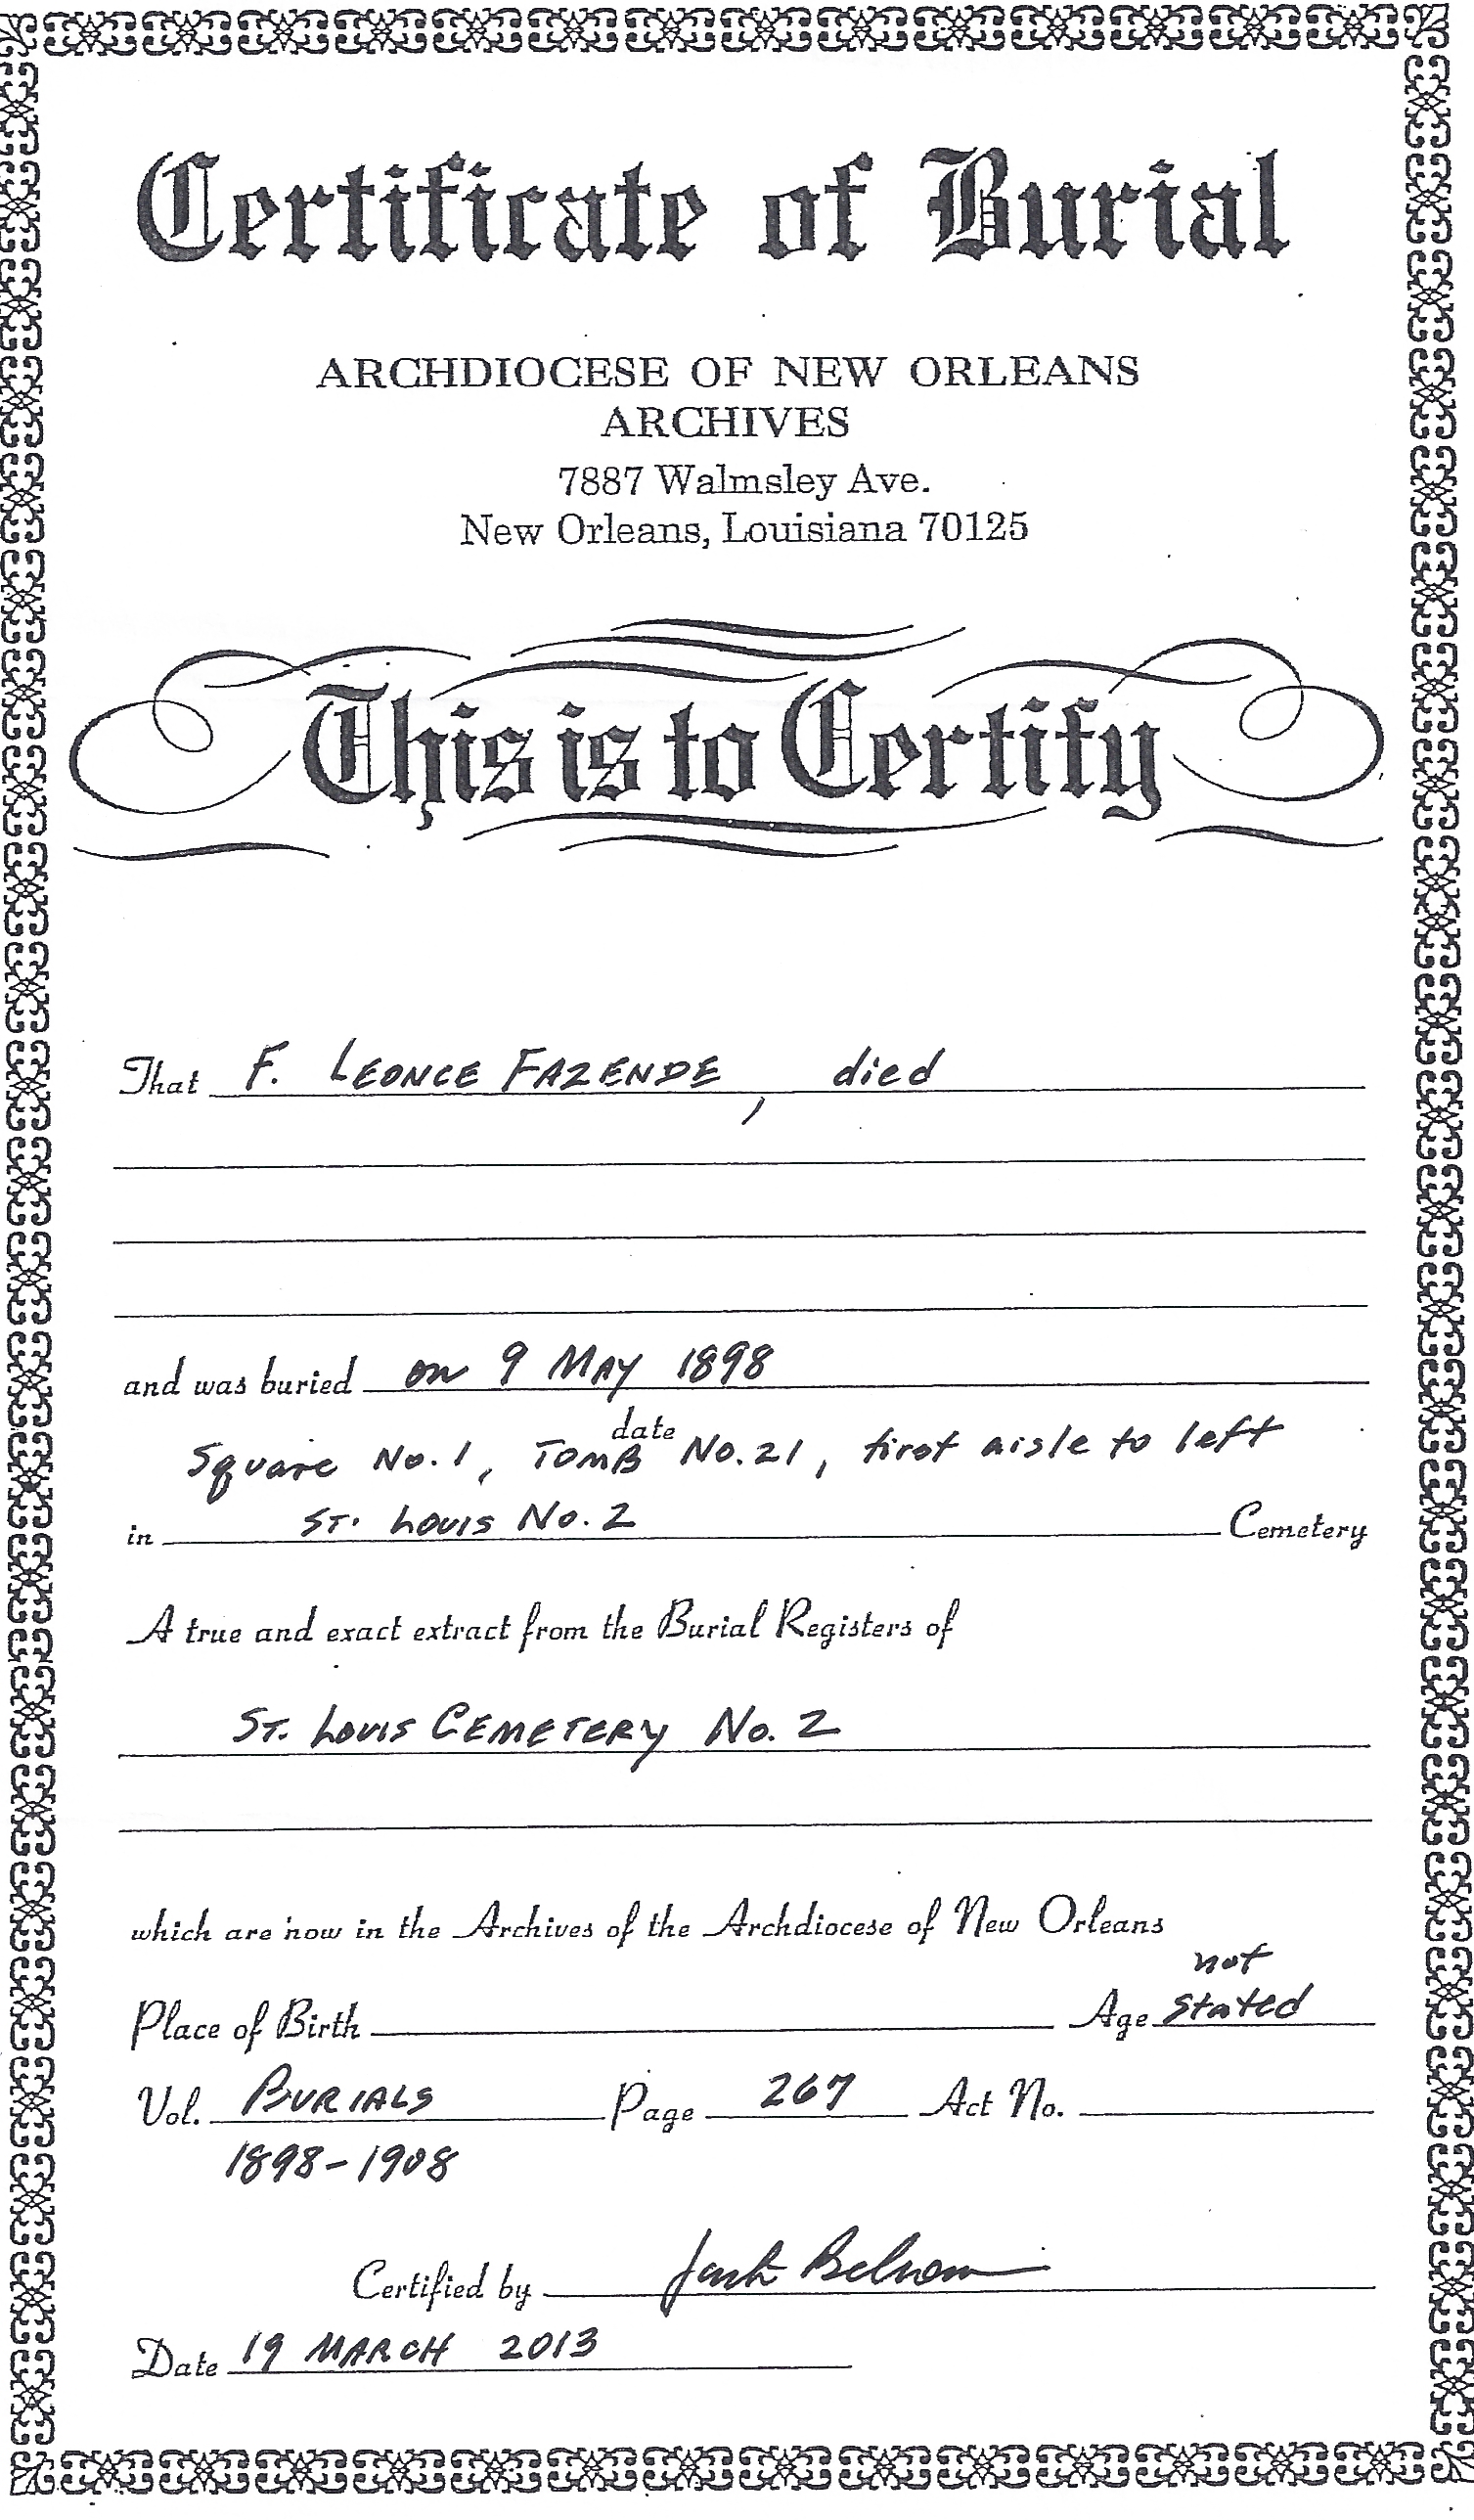 Certificate of Burial
ARCHDIOCESE OF NEW ORLEANS
ARCHIVES
7887 Walmsley Ave.
New Orleans, Louisiana 70125
This is to Certify
That F. LEONCE FAZENDE, died
and was buried on 9 MAY 1898
date
Square No. 1, TOMB No. 21, first aisle to left
in ST. LOUIS No. 2 Cemetery
A true and exact extract from the Burial Registers of
ST. LOUIS CEMETERY No. 2
which are now in the Archives of the Archdiocese of New Orleans
not
Place of Birth Age stated
Vol. BURIALS Page 267 Act No.
1898-1908
Certified by Jack Belsom
Date 19 MARCH 2013